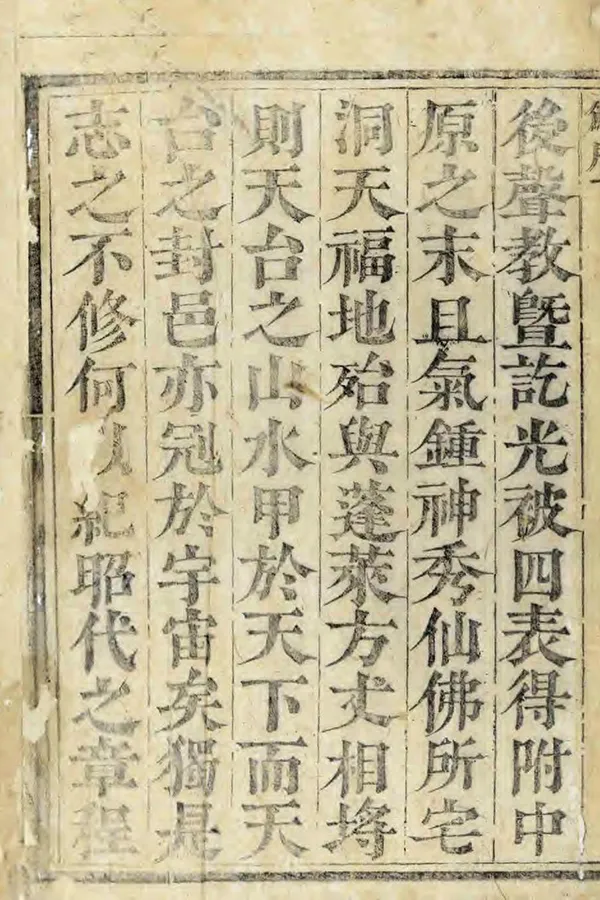 後聲教曁訖光被四表得附中
原之末且氣鍾神秀仙佛所宅
洞天福地殆與蓬萊方丈相埒
則天台之山水甲於天下而天
台之封邑亦冠於宇宙矣獨是
志之不修何以紀昭代之章程